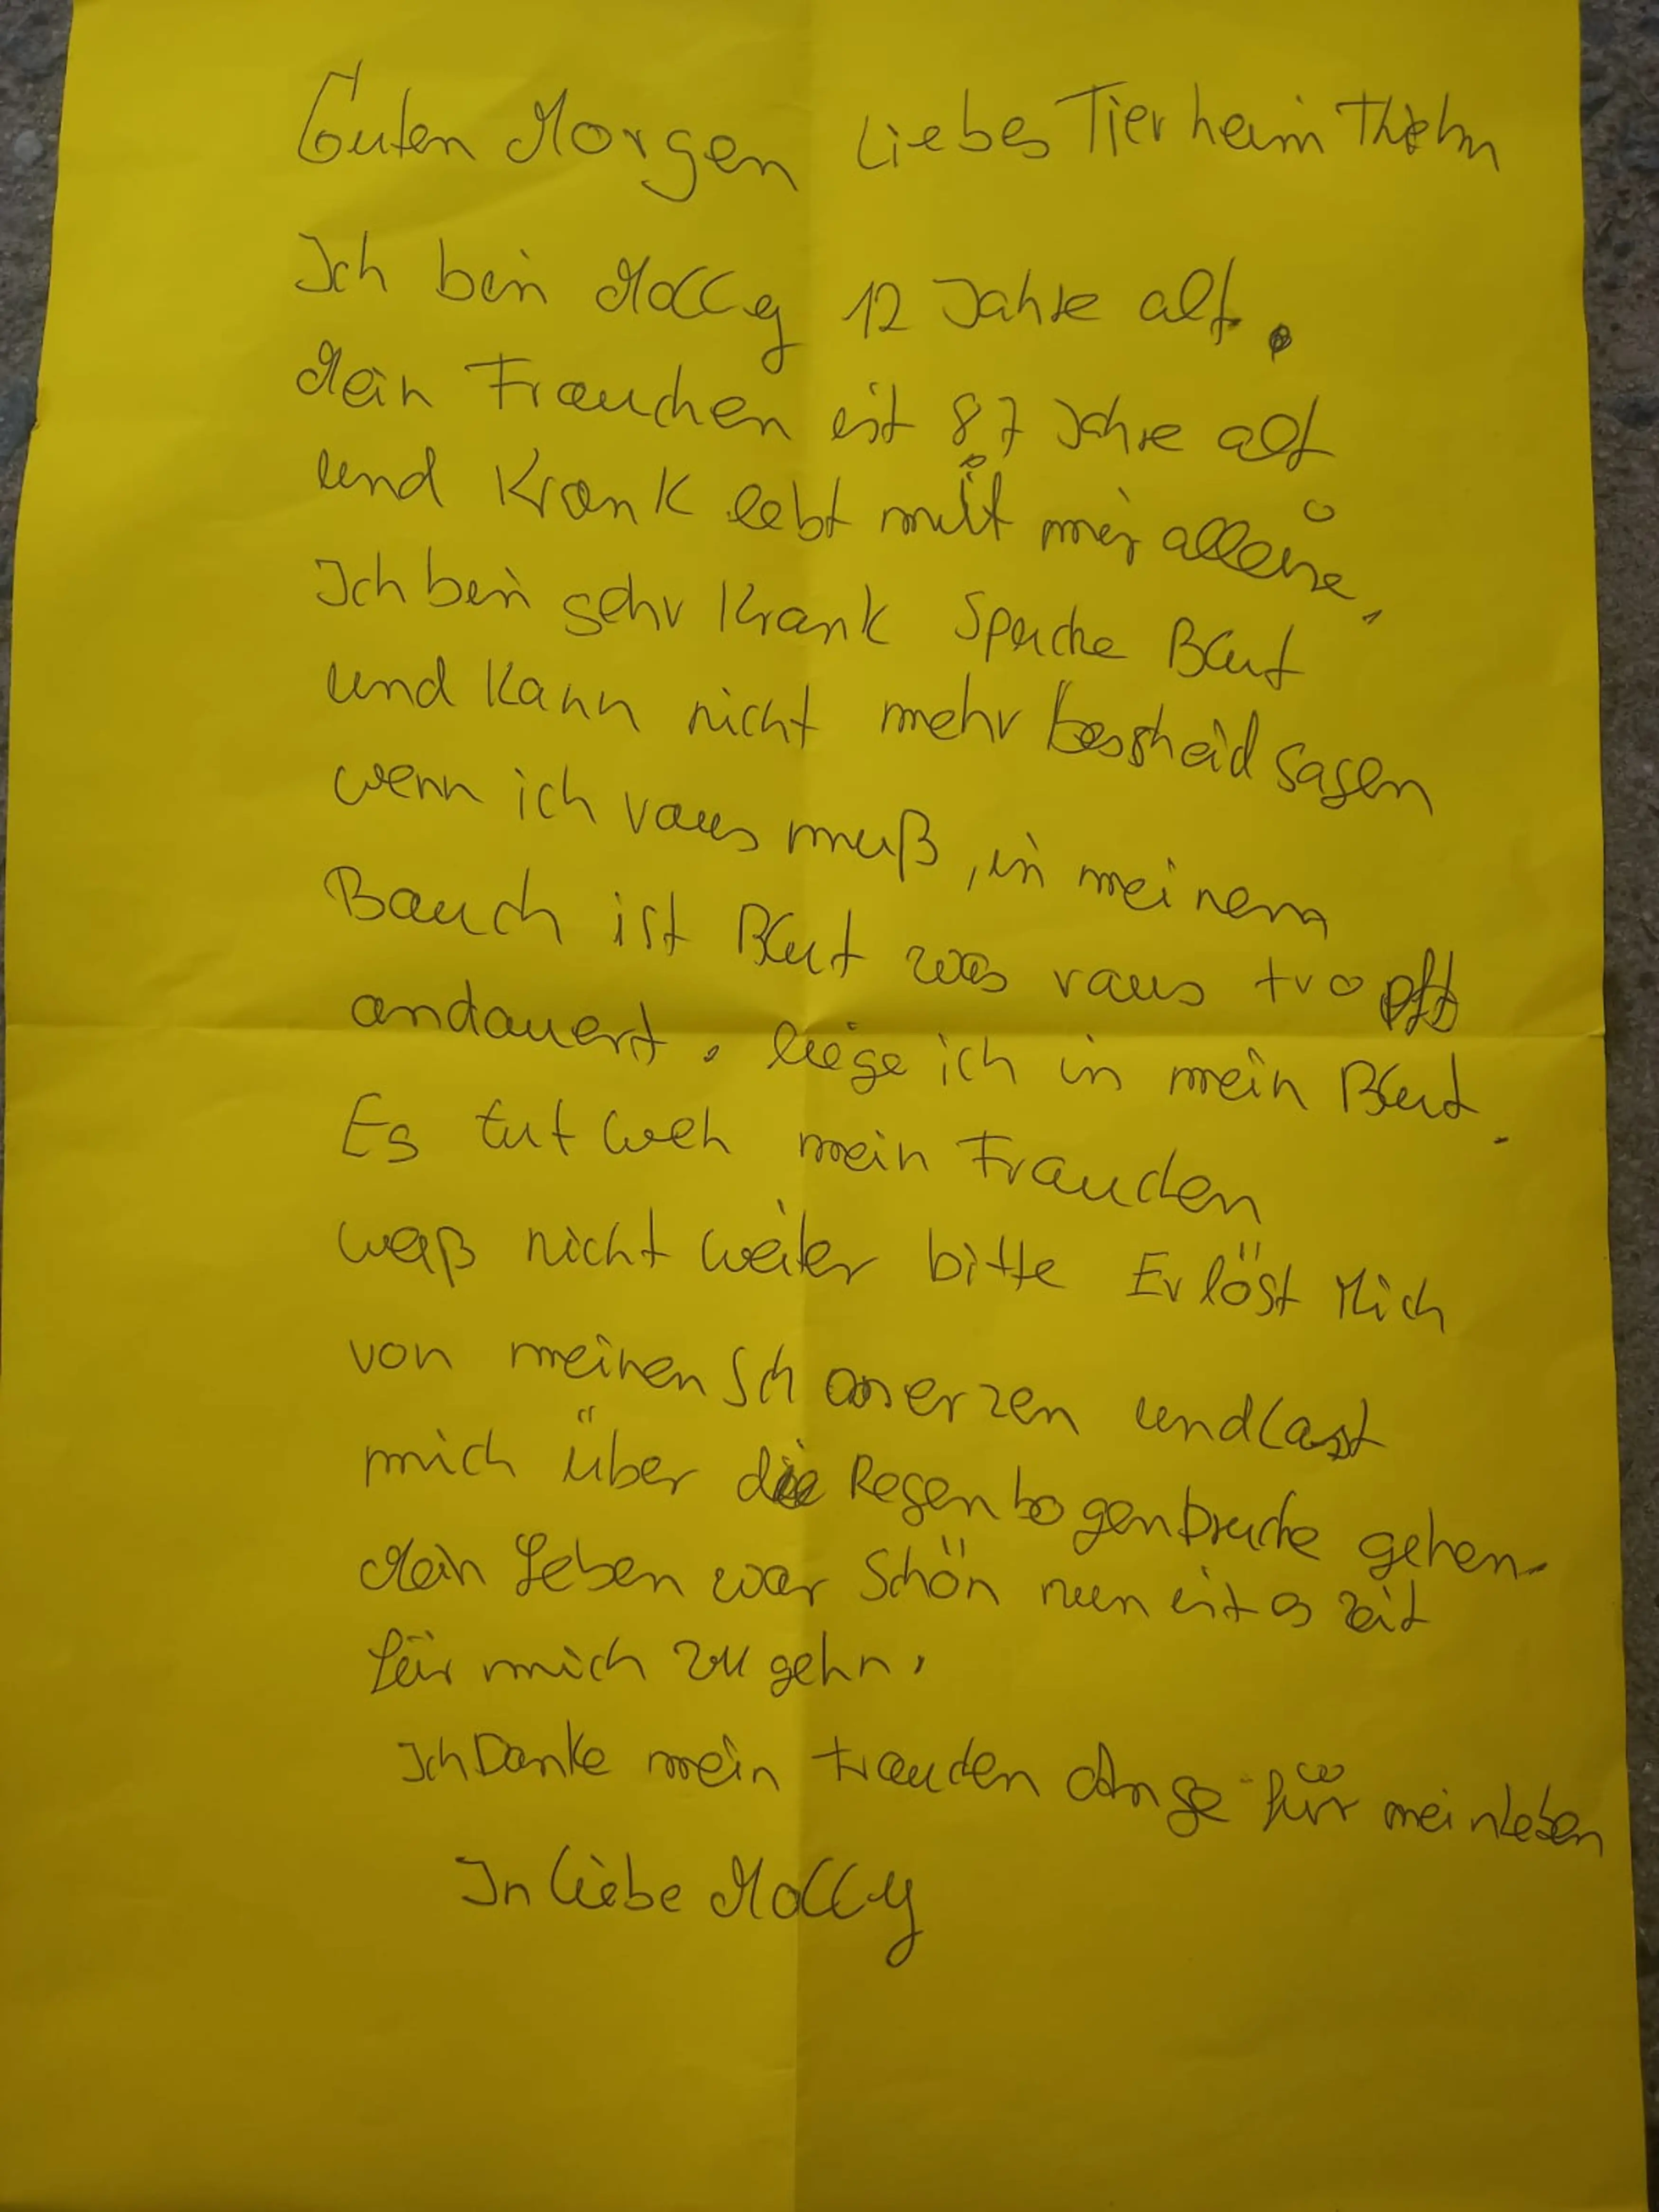 Guten Morgen Liebes Tierheim
Ich bin Molly 12 Jahre alt.
Mein Frauchen ist 87 Jahre alt
und Krank lebt mit mir alleine,
Ich bin sehr Krank Spucke Blut
und kann nicht mehr bescheid sagen
wenn ich raus muß, in meinem
Bauch ist Blut was raus tropft
andauert. liege ich in mein Blut.
Es tut weh mein Frauchen
weiß nicht weiter bitte Erlöst Mich
von meinen Schmerzen und last
mich über die Regenbogenbrucke gehen.
Mein Leben war Schön nun ist es zeit
für mich zu gehn.
Ich Danke mein Frauchen für mein Leben
In Liebe Molly